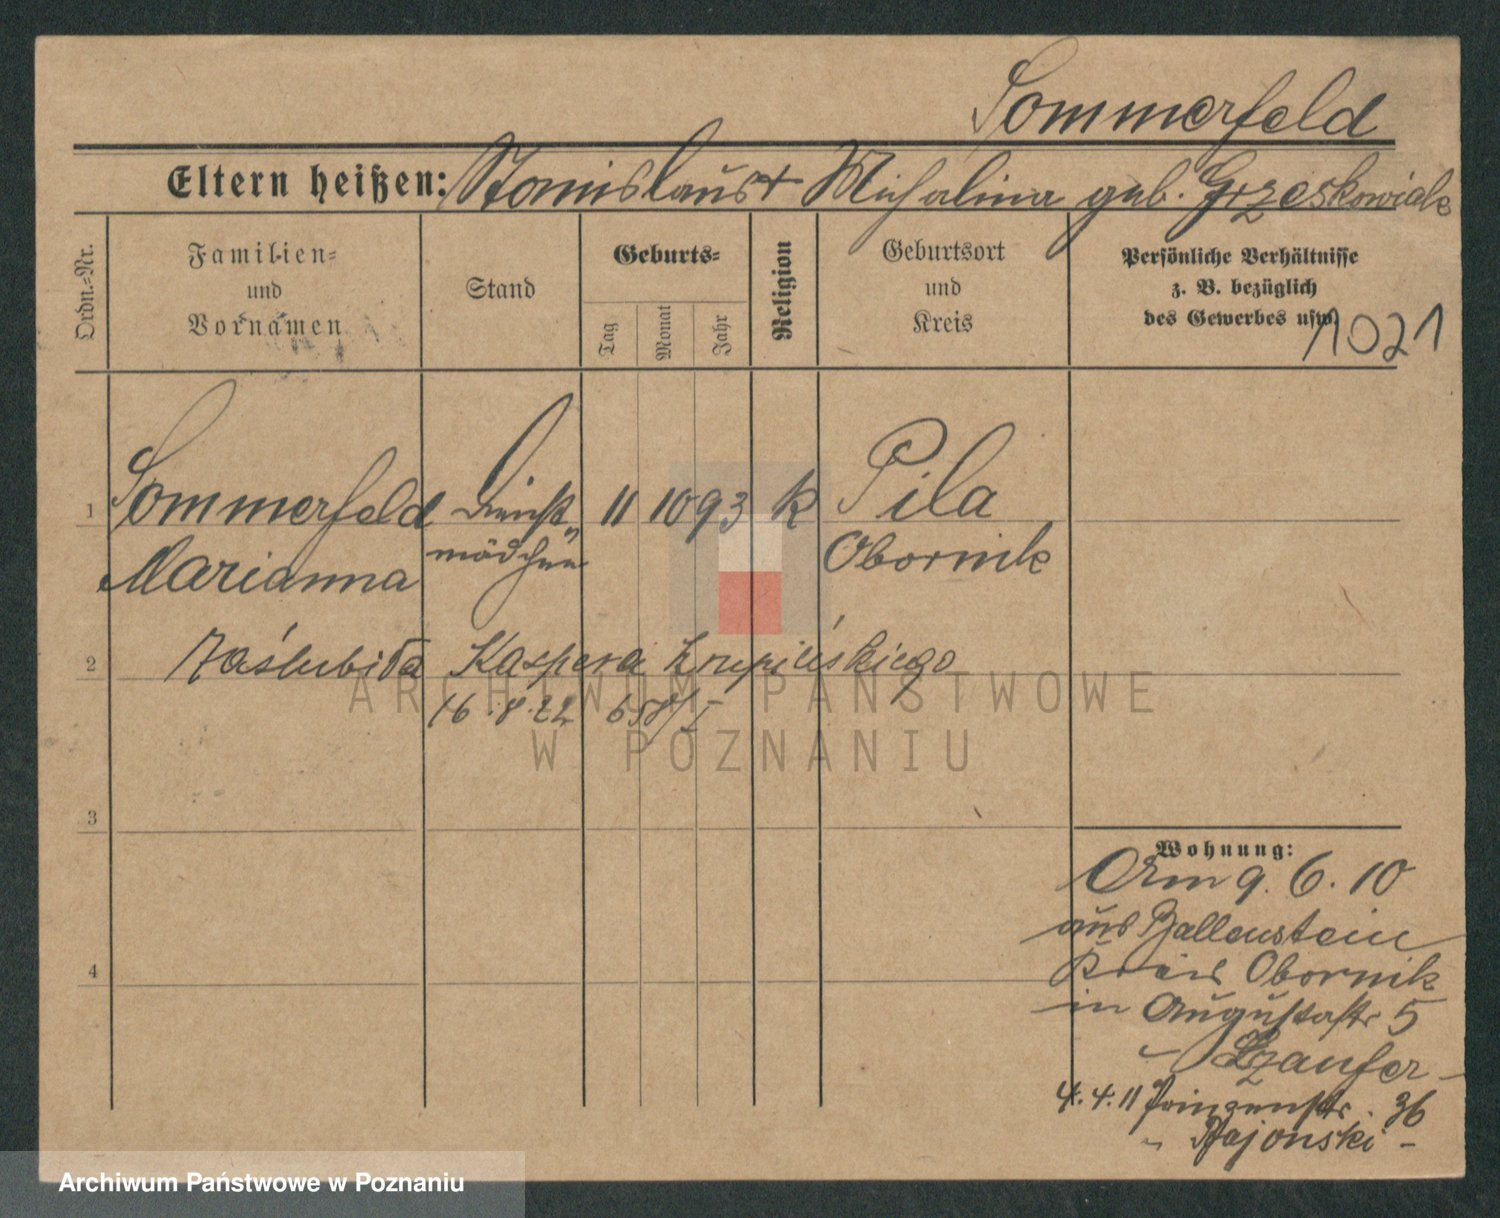 Sommerfeld
Eltern heißen: Stanislaus + Michalina geb. Grzeskowiak
Ordn.=Nr.
Familien=
und
Vornamen
Stand
Geburts=
Tag
Monat
Jahr
Religion
Geburtsort
und
Kreis
Persönliche Verhältnisse
z. B. bezüglich
des Gewerbes usw.
1021
1 Sommerfeld Dienst= 11 10 93 k Pila
Marianna mädchen Obornik
2 Zaślubiła Kaspera Krupińskiego
16.8.22 658/I
3
4
Wohnung:
Am 9. 6. 10
aus Ballenstein
Kreis Obornik
in Augustastr 5
4.4.11 Prinzenstr. 36
" Rajonski -
ARCHIWUM PAŃSTWOWE
W POZNANIU
Archiwum Państwowe w Poznaniu